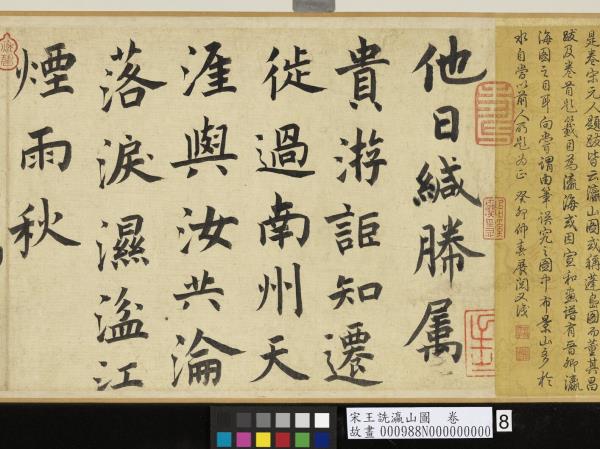 是卷宋元人題跋皆云瀛山圖或稱蓬島圖而董其昌
跋及卷首籤目為瀛海或因宣和畫譜有晉卿瀛
海圖之目耶向嘗謂由筆誤究之圖中布景山多於
水自當以前人所題為正 癸卯仲春展閱又識
他日緘勝屬
貴游詎知遷
徙過南州天
涯與汝共淪
落淚濕湓江
煙雨秋
宋王詵瀛山圖 卷
故畫 000988N000000000
8